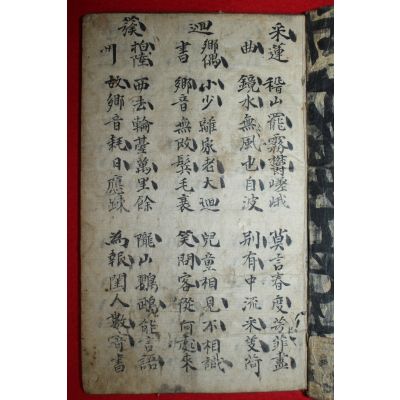 采蓮 稽山罷霧鬱嵯峨 莫言春度芳菲盡
曲 鏡水無風也自波 別有中流采芰荷
迴
鄉偶 小少離家老大迴 兒童相見不相識
書 鄉音無改鬢毛衰 笑問客從何處來
發
西去輪臺萬里餘 隴山鸚鵡能言語
州 故鄉音耗日應疎 為報閨人數寄書